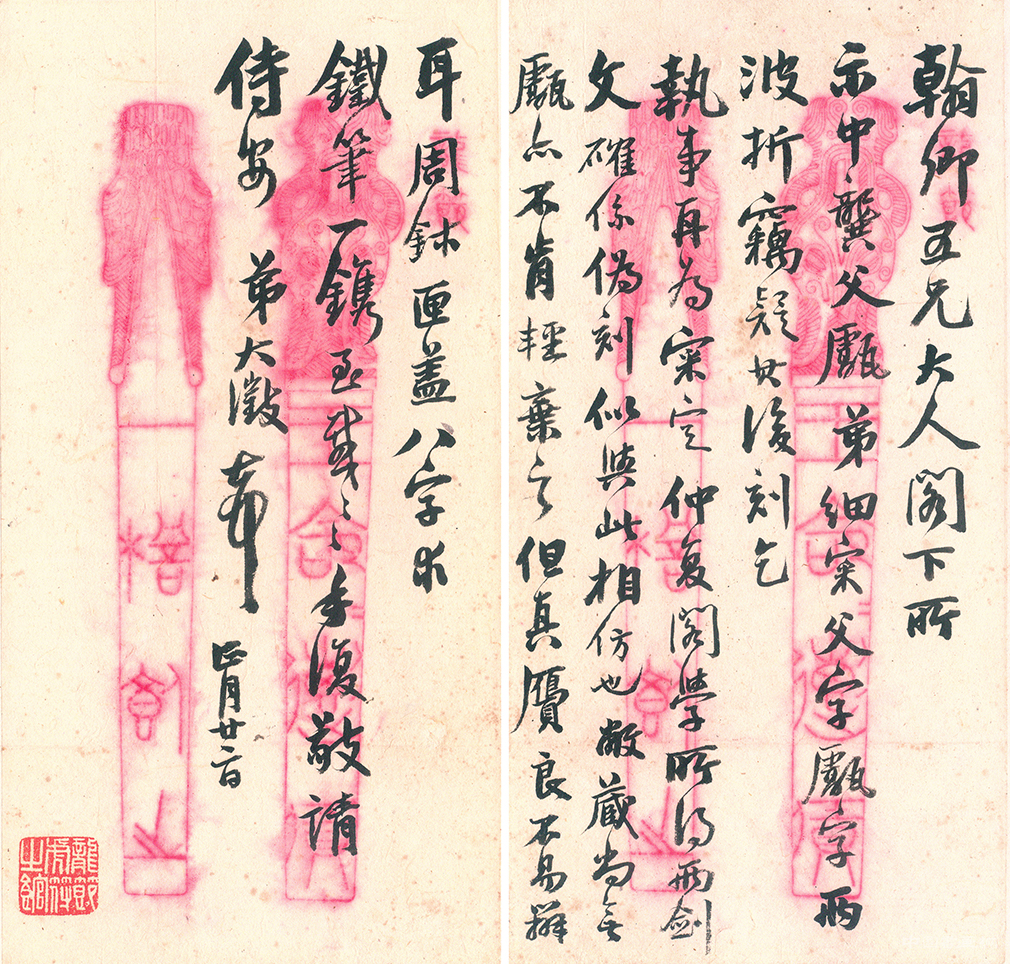 翰卿五兄大人閣下所
示中龔父甗弟細宷父字甗字兩
波折竊疑其後刻乞
執事再為宷定仲复閣學所得兩劍
文確係偽刻似與此相仿也敝藏尚無
甗亦不肯輕棄之但真贋良不易辨
耳周鉢匣蓋八字求
鐵筆一鐫至感〻〻手復敬請
侍安 弟大澂頓首
正月廿日
龍節虎符之館